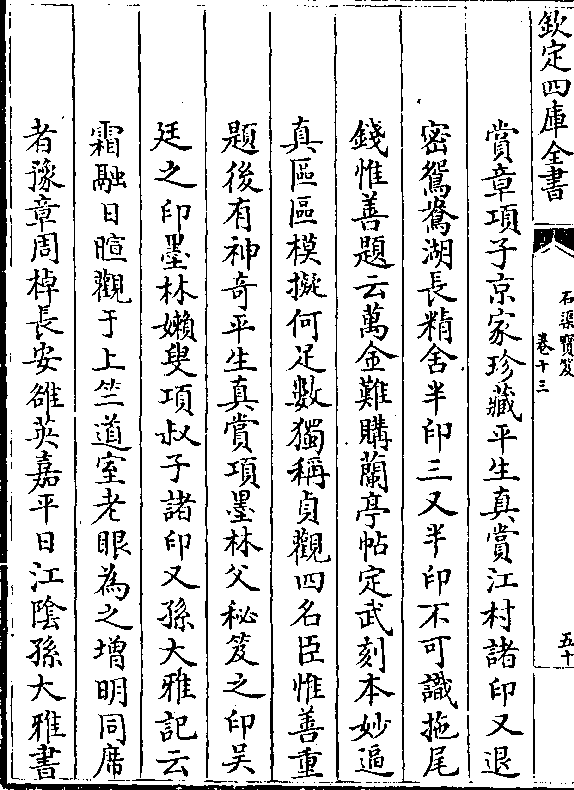 欽定四庫全書
石渠寶笈
卷十三
五十
賞章項子京家珍藏平生真賞江村諸印又退
密鴛鴦湖長精舍半印三又半印不可識拖尾
錢惟善題云萬金難購蘭亭帖定武刻本妙逼
真區區模擬何足數獨稱貞觀四名臣惟善重
題後有神奇平生真賞項墨林父秘笈之印吴
廷之印墨林嬾叟項叔子諸印又孫大雅記云
霜融日暄觀于上竺道室老眼為之增明同席
者豫章周棹長安雒英嘉平日江陰孫大雅書